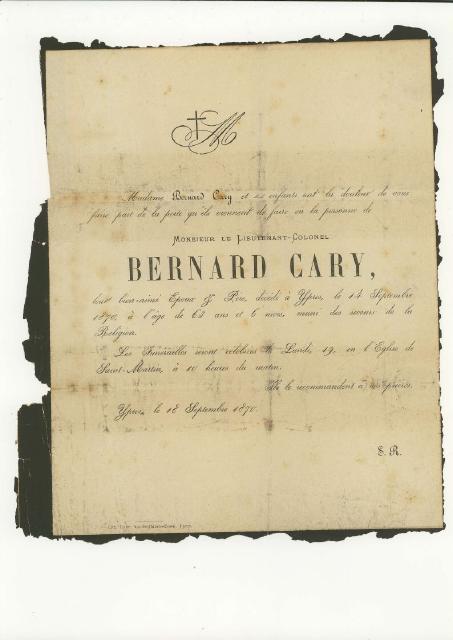 M
Madame Bernard Cary et ses enfants ont la douleur de vous
faire part de la perte qu'ils viennent de faire en la personne de
MONSIEUR LE LIEUTENANT-COLONEL
BERNARD CARY,
leur bien-aimé Epoux & Père, décédé à Ypres, le 14 Septembre
1870, à l'âge de 64 ans et 6 mois, muni des secours de la
Religion.
Les Funérailles seront célébrées le Lundi, 19, en l'Eglise de
Saint-Martin, à 10 heures du matin.
Ils le recommandent à vos prières.
Ypres, le 18 Septembre 1870.
E. R.